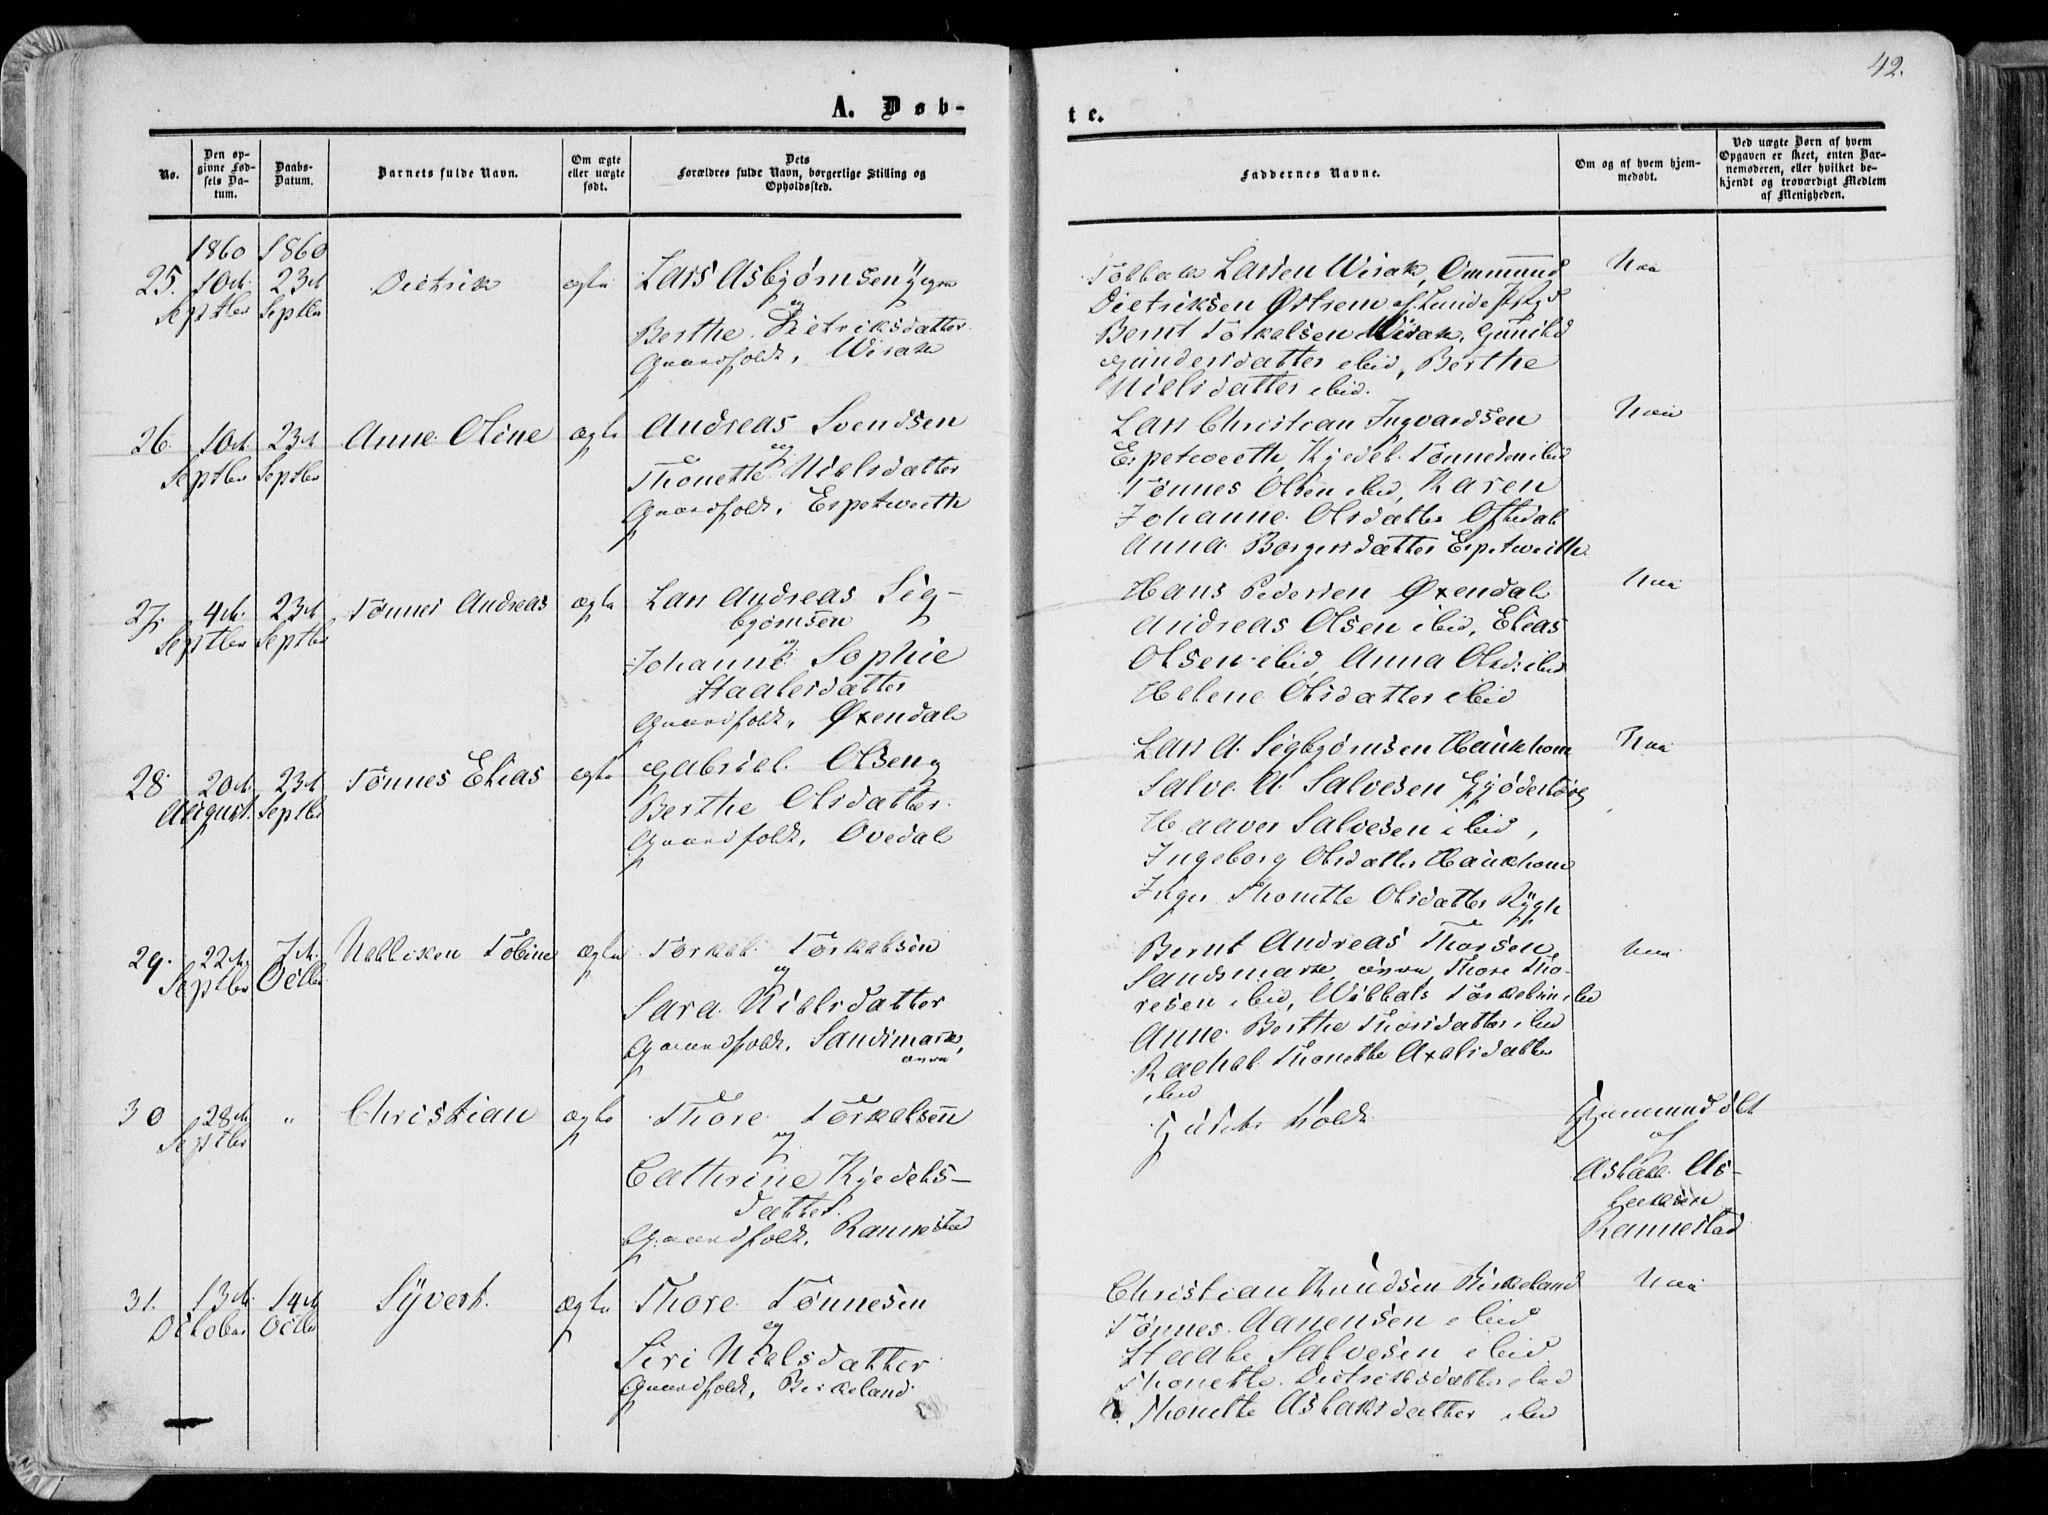 42.
A. Døb-
te.
No.
Den op-
givne Fød-
sels Da-
tum.
Daabs-
Datum.
Barnets fulde Navn.
Om ægte
eller uægte
født.
Dets
Forældres fulde Navn, borgerlige Stilling og
Opholdssted.
Faddernes Navne.
Om og af hvem hjem-
medøbt.
Ved uægte Børn af hvem
Opgaven er skeet, enten Bar-
nemoderen, eller hvilket be-
kjendt og troværdigt Medlem
af Menigheden.
1860 1860
25. 10de Septbr 23de Septbr Dietrik ægte
Lars Asbjørnsen
og
Berthe Dietriksdatter
Gaardfolk, Wirak
Larsen Wirak, Ommund
Dietriksen Østrem af Lunde
Bernt Torkelsen Wirak, Gunild
Gundersdatter ibid, Berthe
Nielsdatter ibid.
Nei
26. 10de Septbr 23de Septbr Anne Oline ægte
Andreas Svendsen
og
Thonette Nielsdatter
Gaardfolk, Espetweeth
Lars Christian Ingvardsen
Espetweeth, Kjedel Tønnesen ibid
Tønnes Olsen ibid, Karen
Johanne Olsdatter Oftedal
Anna Borgersdatter Espetweith
Nei
27. 4de Septbr 23de Septbr Tønnes Andreas ægte
Lars Andreas Sig-
bjørnsen
og
Johanne Sophie
Staalesdatter
Gaardfolk, Øxendal
Hans Pedersen Øxendal
Andreas Olsen ibid, Elias
Olsen ibid Anna Olsd: ibid
Helene Olsdatter ibid
Nei
28. 20de August 23de Septbr Tønnes Elias ægte
Gabriel Olsen og
Berthe Olsdatter
Gaardfolk, Ovedal
Lars A. Sigbjørnsen Haukhom
Salve A. Salvesen
Haaver Salvesen ibid,
Ingeborg Olsdatter Haukhom
Inger Thonette Olsdatter Rygh
Nei
29. 22de Septbr 7de Octbr Nelliken Tobine ægte
Torkel Torkelsen
og
Sara Nielsdatter
Gaardfolk, Sandsmark,
øvre
Bernt Andreas Thorsen,
Sandsmark, øvre, Thore Tho-
resen ibid, Torkelsen ibid
Anne Berthe Thorsdatter ibid
Rachel Thonette Axelsdatter
ibid
Nei
30 28de Septbr " Christian ægte
Thore Torkelsen
og
Cathrine Kjedels-
datter
Gaardfolk, Rannestad
Hjemmedøbt
af
Aslak As-
laksen
Rannestad
31. 13de October 14de Octbr Syvert ægte
Thore Tønnesen
og
Siri Nielsdatter
Gaardfolk, Birkeland
Christian Knudsen Birkeland
Tønnes Aanensen ibid
Staale Salvesen ibid
Thonette Dietriksdatter ibid
Thonette Aslaksdatter ibid
Nei